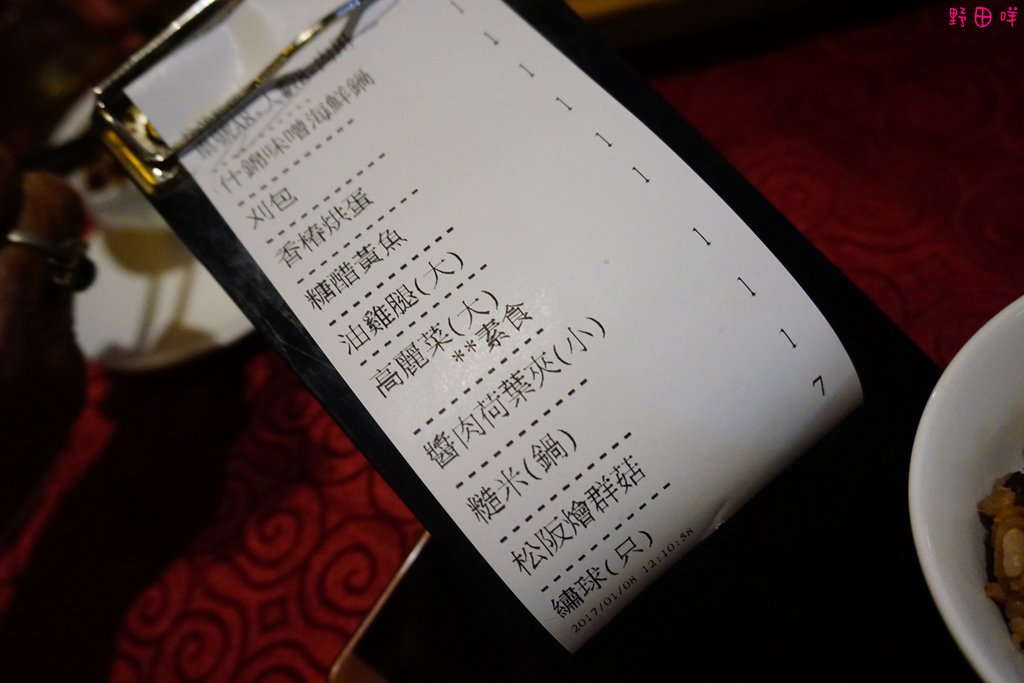 野田咩
什錦味噌海鮮鍋 1
刈包 1
香椿烘蛋 1
糖醋黃魚 1
油雞腿(大) 1
高麗菜(大) 1
**素食
醬肉荷葉夾(小) 1
糙米(鍋) 1
松阪燴群菇 1
繡球(只) 7
2017/01/08 12:10:58